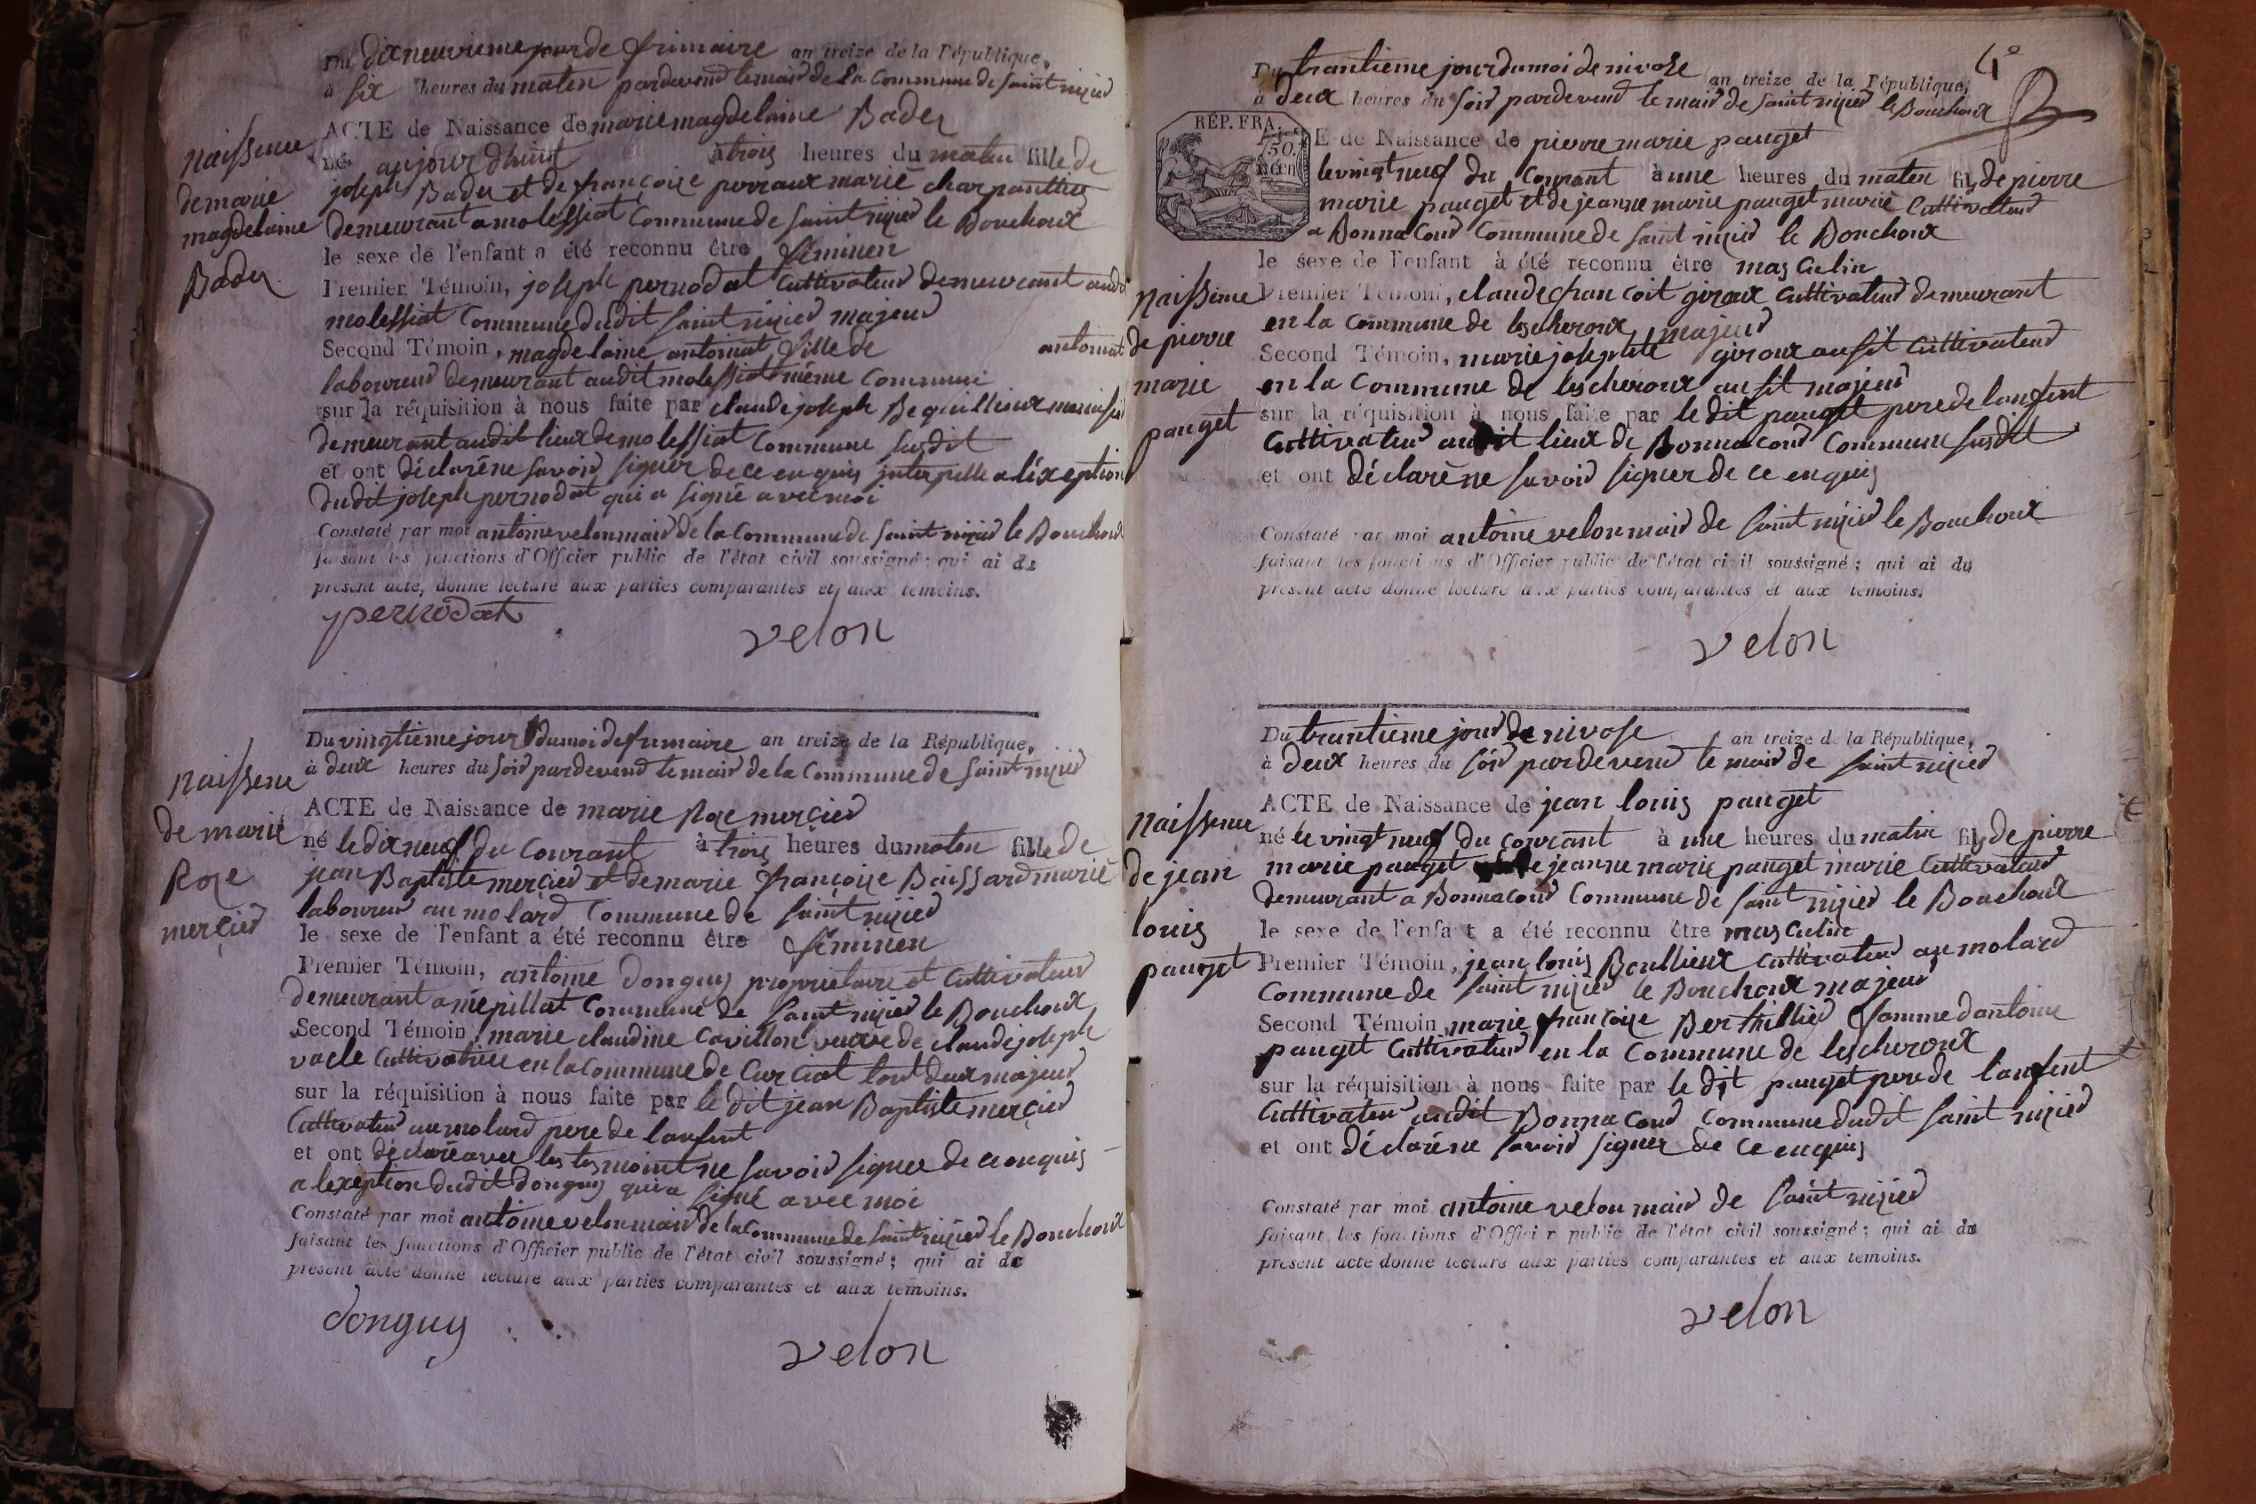 Du dixneuvieme jour de frimaire an treize de la République,
à six heures du maten pardevend lemaid de la Commune de saint nizied
ACTE de Naissance de marie magdelaine Badez
né aujourdhuit à trois heures du maten fille de
joseph Badez et de françoise perraux marié charpanttier
demeurant a molessiat Commune de saint nizied le Bouchoux
le sexe de l'enfant a été reconnu être féminen
Premier Témoin, joseph pernodat Cultivateud demeurant audit
molessiat Commune dudit saint nizied majeud
Second Témoin, magdelaine antomat fille de antomat
laboureud demeurant audit molessiat même Commune
sur la réquisition à nous faite par claude joseph Bequillieux
demeurant audit lieux de molessiat Commune susdit
et ont déclaré ne savoid signer de ce enquis interpelle a léxeption
dudit joseph pernodat qui a signé avec moi
Constaté par moi antoine velon maid de la Commune de saint nizied le Bouchoux
faisant les fonctions d'Officier public de l'état civil soussigné ; qui ai du
present acte, donne lecture aux parties comparantes et aux temoins.
pernodat
velon
Naissence
de marie
magdelaine
Badez
Du vingtieme jour du moi de frimaire an treize de la République,
à deux heures du soid pardevend lemaid de la Commune de saint nizied
ACTE de Naissance de marie Roze mercied
né le dixneuf du Courant à trois heures du maten fille de
jean Baptiste mercied et de marie françoise Baissard marié
laboureud au molard Commune de saint nizied
le sexe de l'enfant a été reconnu être féminen
Premier Témoin, antoine donguy proprietaire et Cultivateud
demeurant a mépillat Commune de saint nizied le Bouchoux
Second Témoin, marie claudine Cavillon veuve de claude joseph
vacle Cultivatrice en la Commune de Curciat tout deux majeud
sur la réquisition à nous faite par le dit jean Baptiste mercied
Cultivateud au molard pere de lanfent
et ont déclaré avec les tesmoint ne savoid signer de ce enquis
a lexeption dudit donguy qui a signé avec moi
Constaté par moi antoine velon maid de la Commune de saint nizied le Bouchoux
faisant les fonctions d'Officier public de l'état civil soussigné ; qui ai du
present acte donne lecture aux parties comparantes et aux temoins.
donguy
velon
Naissence
de marie
Roze
mercied
4e
Du trantieme jour du moi de nivose an treize de la République,
à deux heures du soid pardevend le maid de saint nizied le Bouchoux
RÉP. FRA.
50
E de Naissance de pierre marie pauget
le vingt neuf du Courant à une heures du maten fils de pierre
marie pauget et de jeanne marie pauget marié Cultivateud
a Bonna Coud Commune de saint nizied le Bouchoux
le sexe de l'enfant à été reconnu être masculin
Premier Témoin, claude francoit giroux Cultivateud demeurant
en la Commune de lescheroux majeud
Second Témoin, marie josephte giroux ausit Cultivateud
en la Commune de lescheroux ausit majeud
sur la réquisition à nous faite par le dit pauget pere de lanfent
Cultivateud audit lieux de Bonna Coud Commune susdit
et ont déclaré ne savoid signer de ce enquis
Constaté par moi antoine velon maid de saint nizied le Bouchoux
faisant les fonctions d'Officier public de l'état civil soussigné ; qui ai du
present acte donne lecture aux parties comparantes et aux temoins.
velon
Naissence
de pierre
marie
pauget
Du trantieme jour de nivose an treize de la République,
à deux heures du soid pardevend le maid de saint nizied
ACTE de Naissance de jean louis pauget
né le vingt neuf du Courant à une heures du matin fils de pierre
marie pauget et de jeanne marie pauget marié Cultivateud
demeurant a Bonnacoud Commune de saint nizied le Bouchoux
le sexe de l'enfant a été reconnu être masculin
Premier Témoin, jean louis Boullieux Cultivateud au molard
Commune de saint nizied le Bouchoux majeud
Second Témoin, marie françoise Berthillied famme dantoine
pauget Cultivateud en la Commune de lescheroux
sur la réquisition à nous faite par le dit pauget pere de lanfent
Cultivateud audit Bonna Coud Commune dudit saint nizied
et ont déclaré ne savoid signer de ce enquis
Constaté par moi antoine velon maid de saint nizied
faisant les fonctions d'Officier public de l'état civil soussigné ; qui ai du
present acte donne lecture aux parties comparantes et aux temoins.
velon
Naissence
de jean
louis
pauget